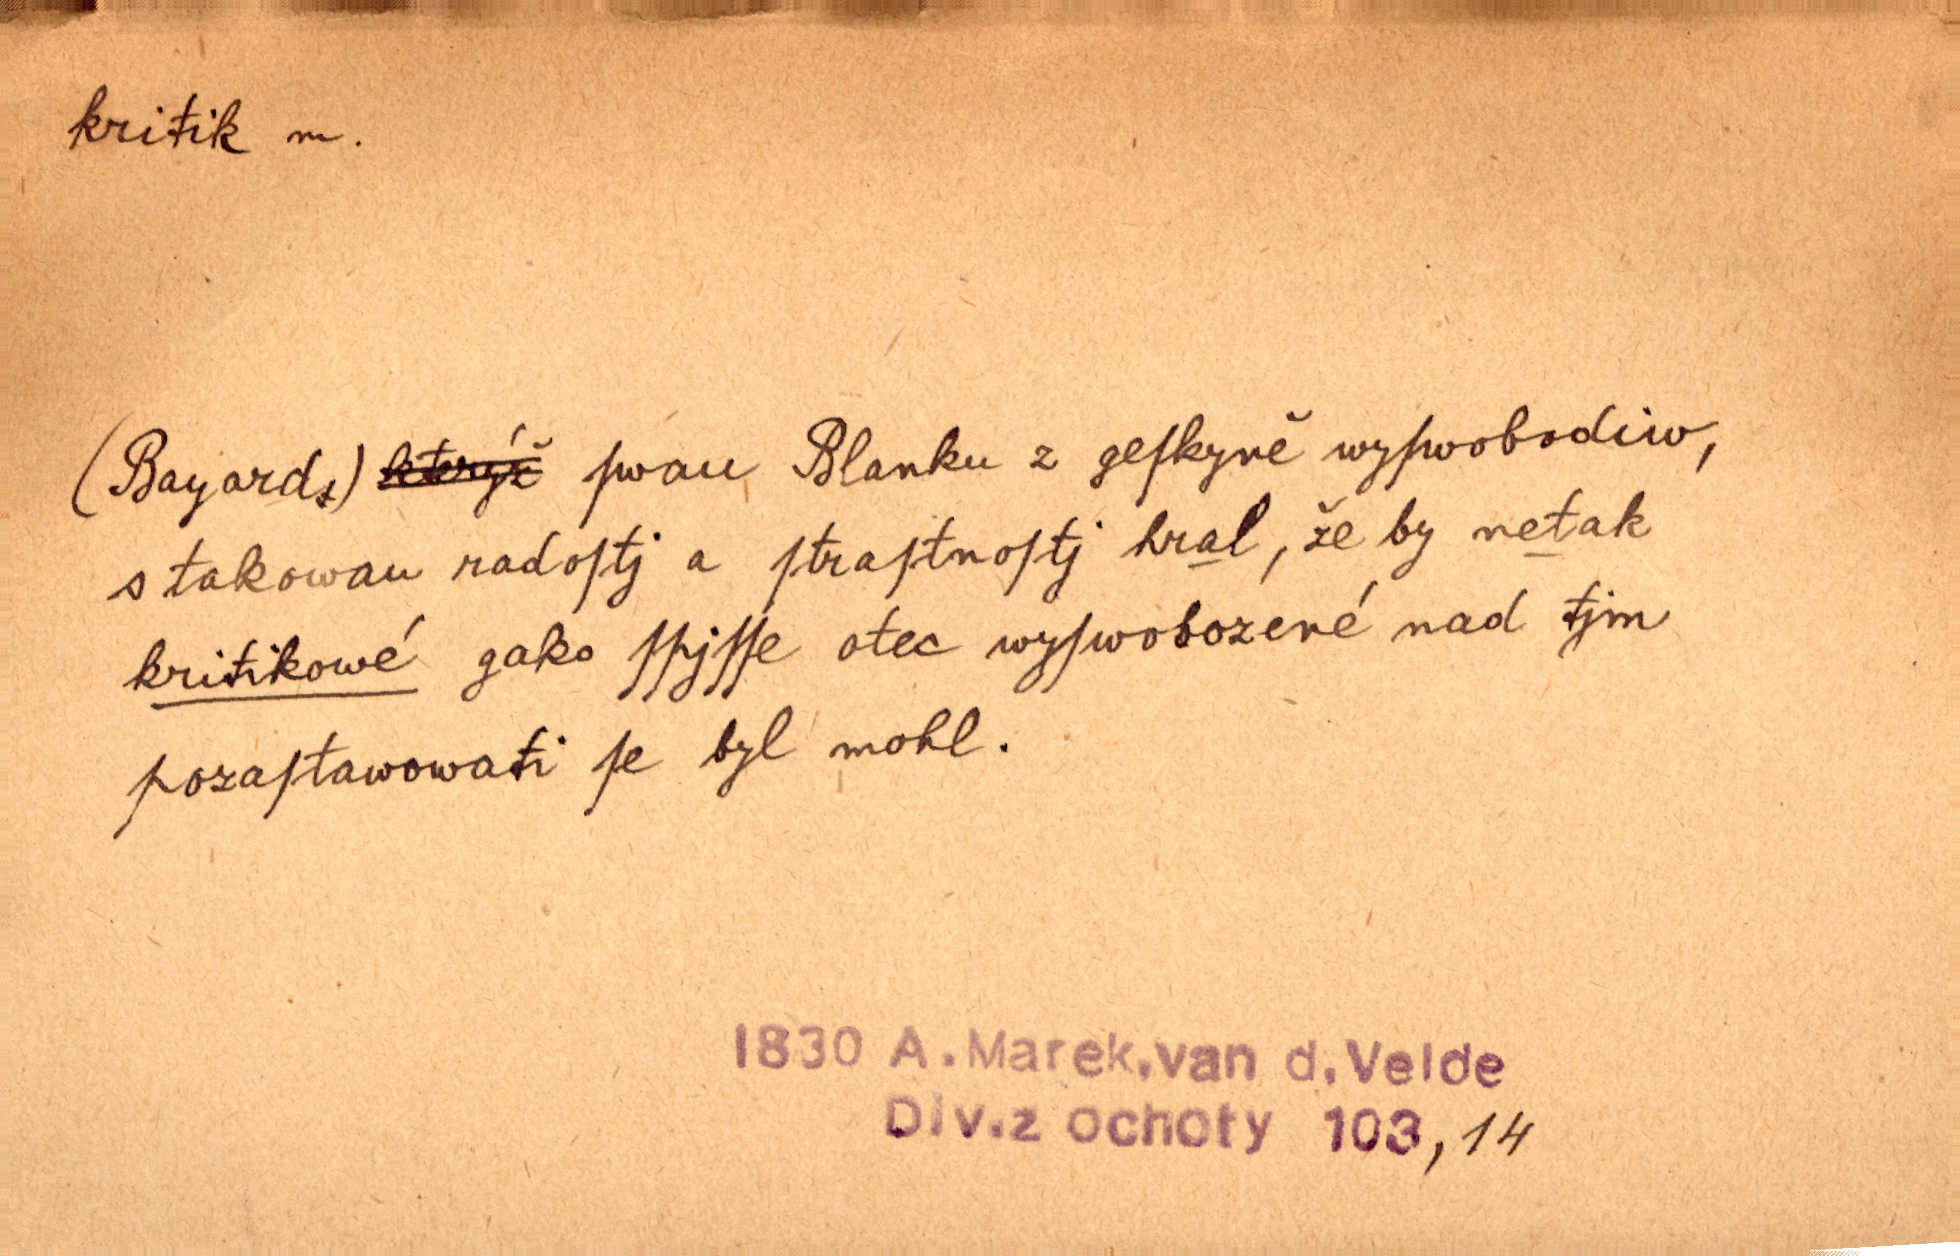 kritik m.
(Bayard) kterýž ſwau Blanku z geſkyně wyſwobodiw,
s takowau radoſtj a ſtraſtnoſtj hral, že by netak
kritikowé gako ſſpjſſe otec wyſwobozené nad tjm
pozaſtawowati ſe byl mohl.
1830 A.Marek.van d.Velde
Div.z ochoty 103,14